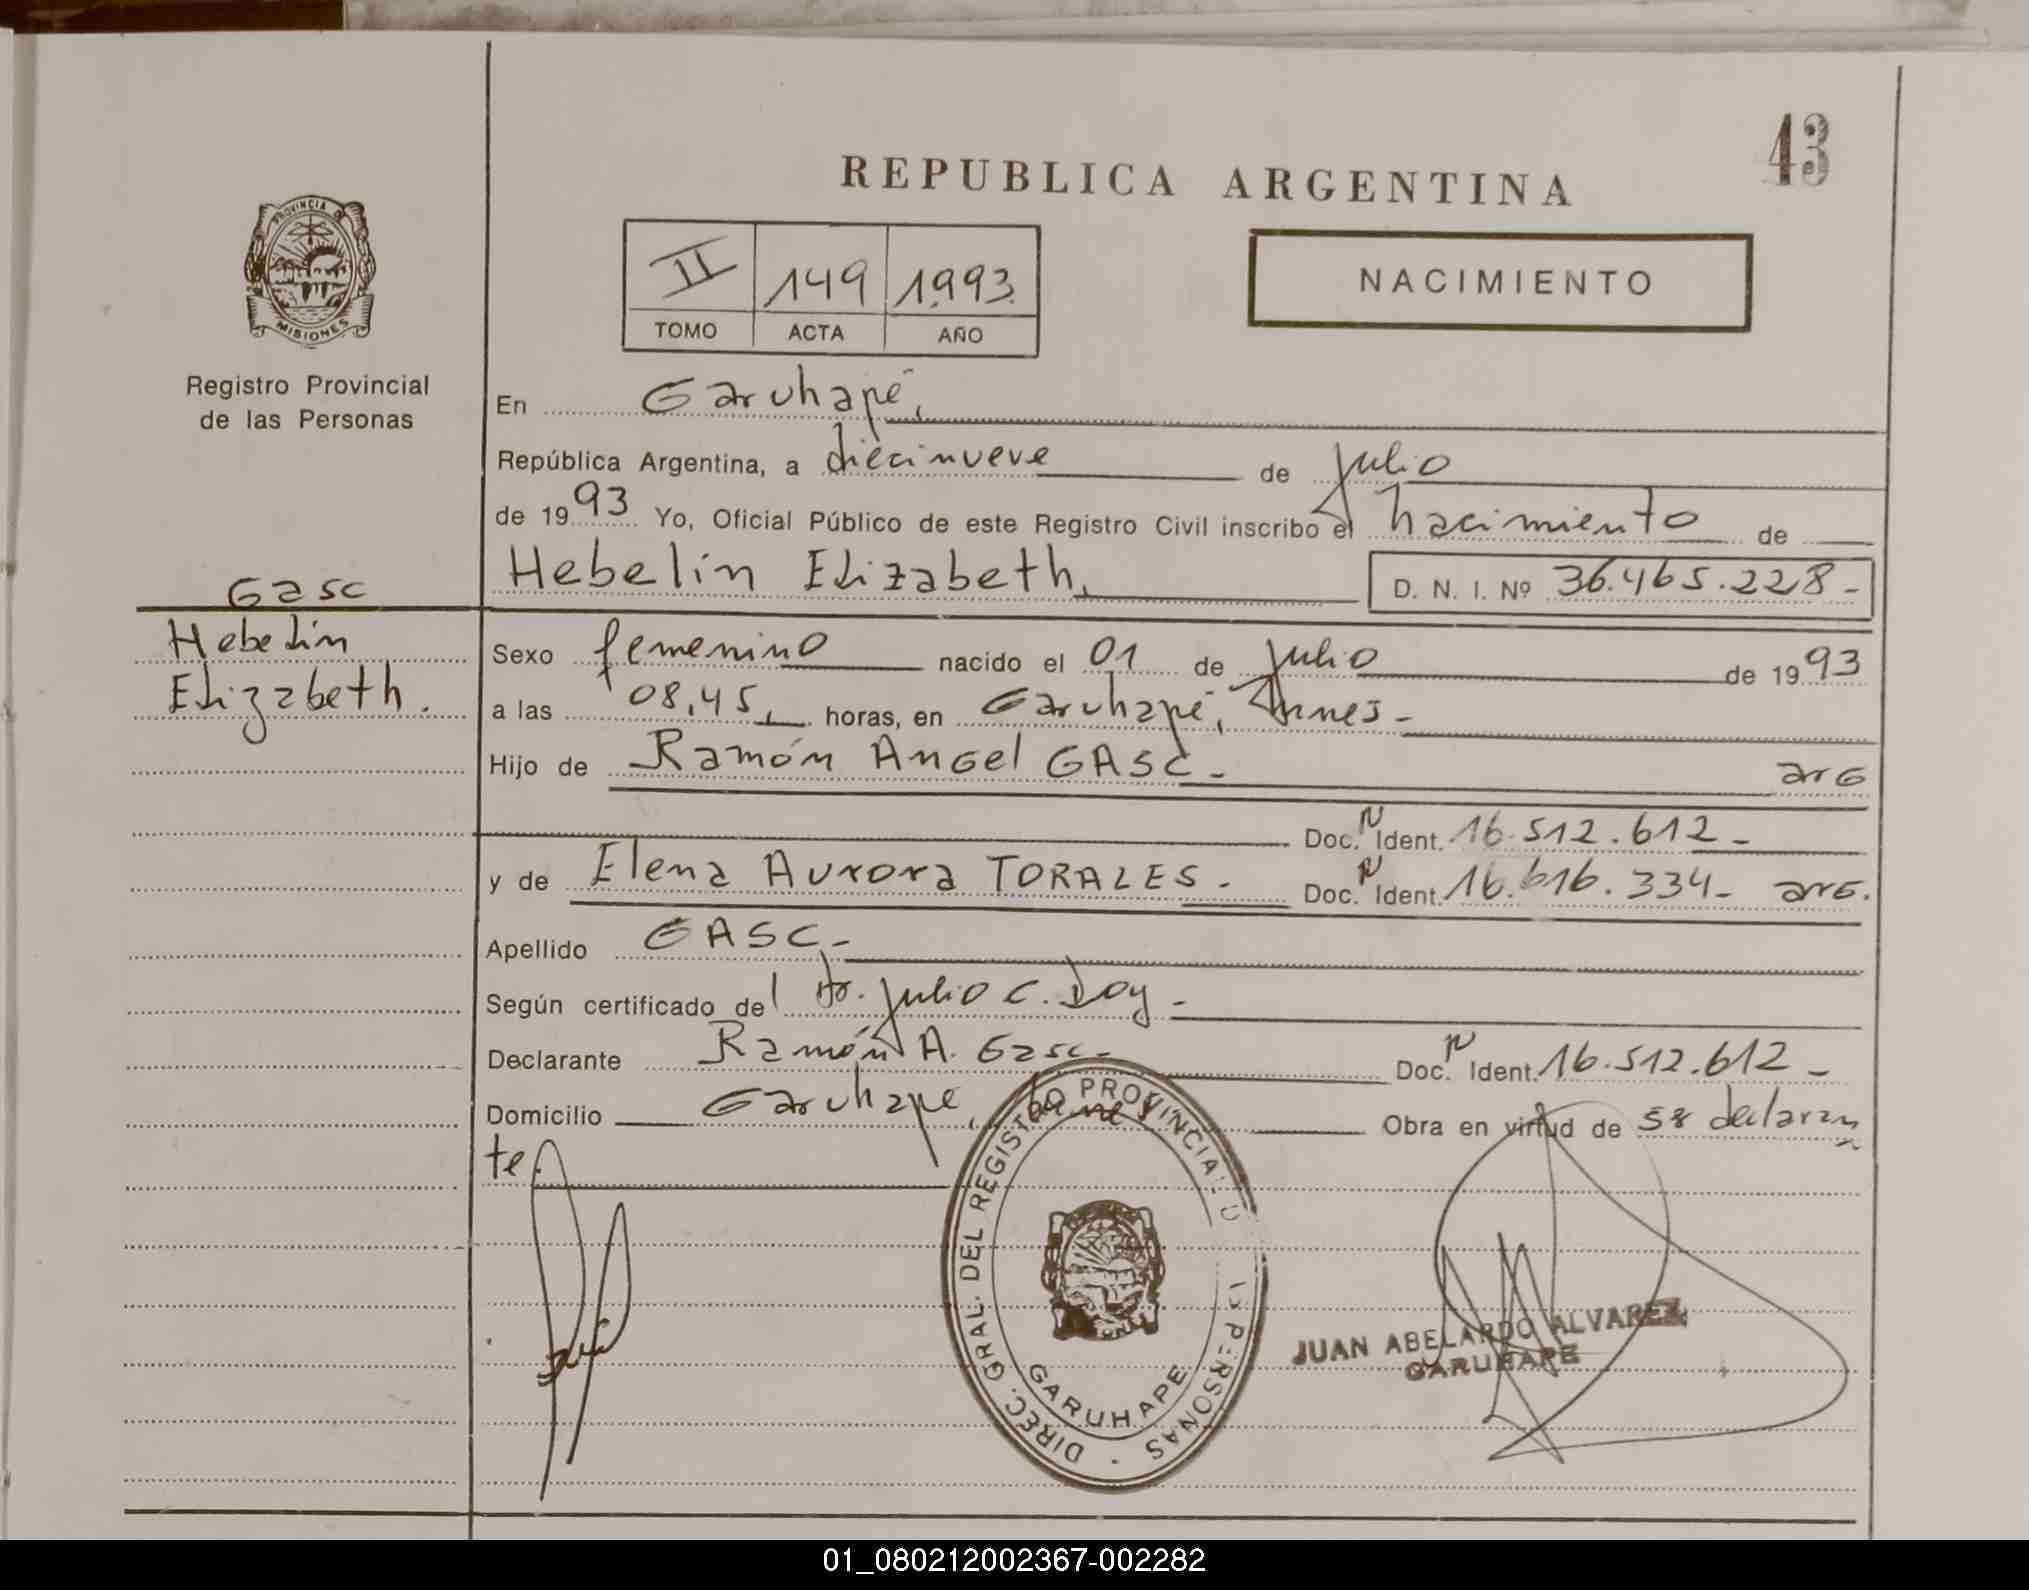 43
REPUBLICA ARGENTINA
PROVINCIA DE
MISIONES
Registro Provincial
de las Personas
II 149 1993.
TOMO ACTA AÑO
NACIMIENTO
En Garuhapé,
República Argentina, a diecinueve de Julio
de 1993 Yo, Oficial Público de este Registro Civil inscribo el nacimiento de
Hebelin Elizabeth, D. N. I. Nº 36.465.228-
Gasc
Hebelin
Elizabeth.
Sexo femenino nacido el 01 de Julio de 1993
a las 08,45, horas, en Garuhapé,
Hijo de Ramón Angel GASC- arg
Doc. N Ident. 16.512.612-
y de Elena Aurora TORALES. Doc. N Ident. 16.616.334- arg.
Apellido GASC-
Según certificado del Dr. Julio C. Doy-
Declarante Ramón A. Gasc- Doc. N Ident. 16.512.612-
Domicilio Garuhape, Obra en virtud de ser declaran
te.
DIREC. GRAL. DEL REGISTRO PROVINCIAL D LAS PERSONAS
GARUHAPE
JUAN ABELARDO ALVAREZ
GARUHAPE
01_080212002367-002282